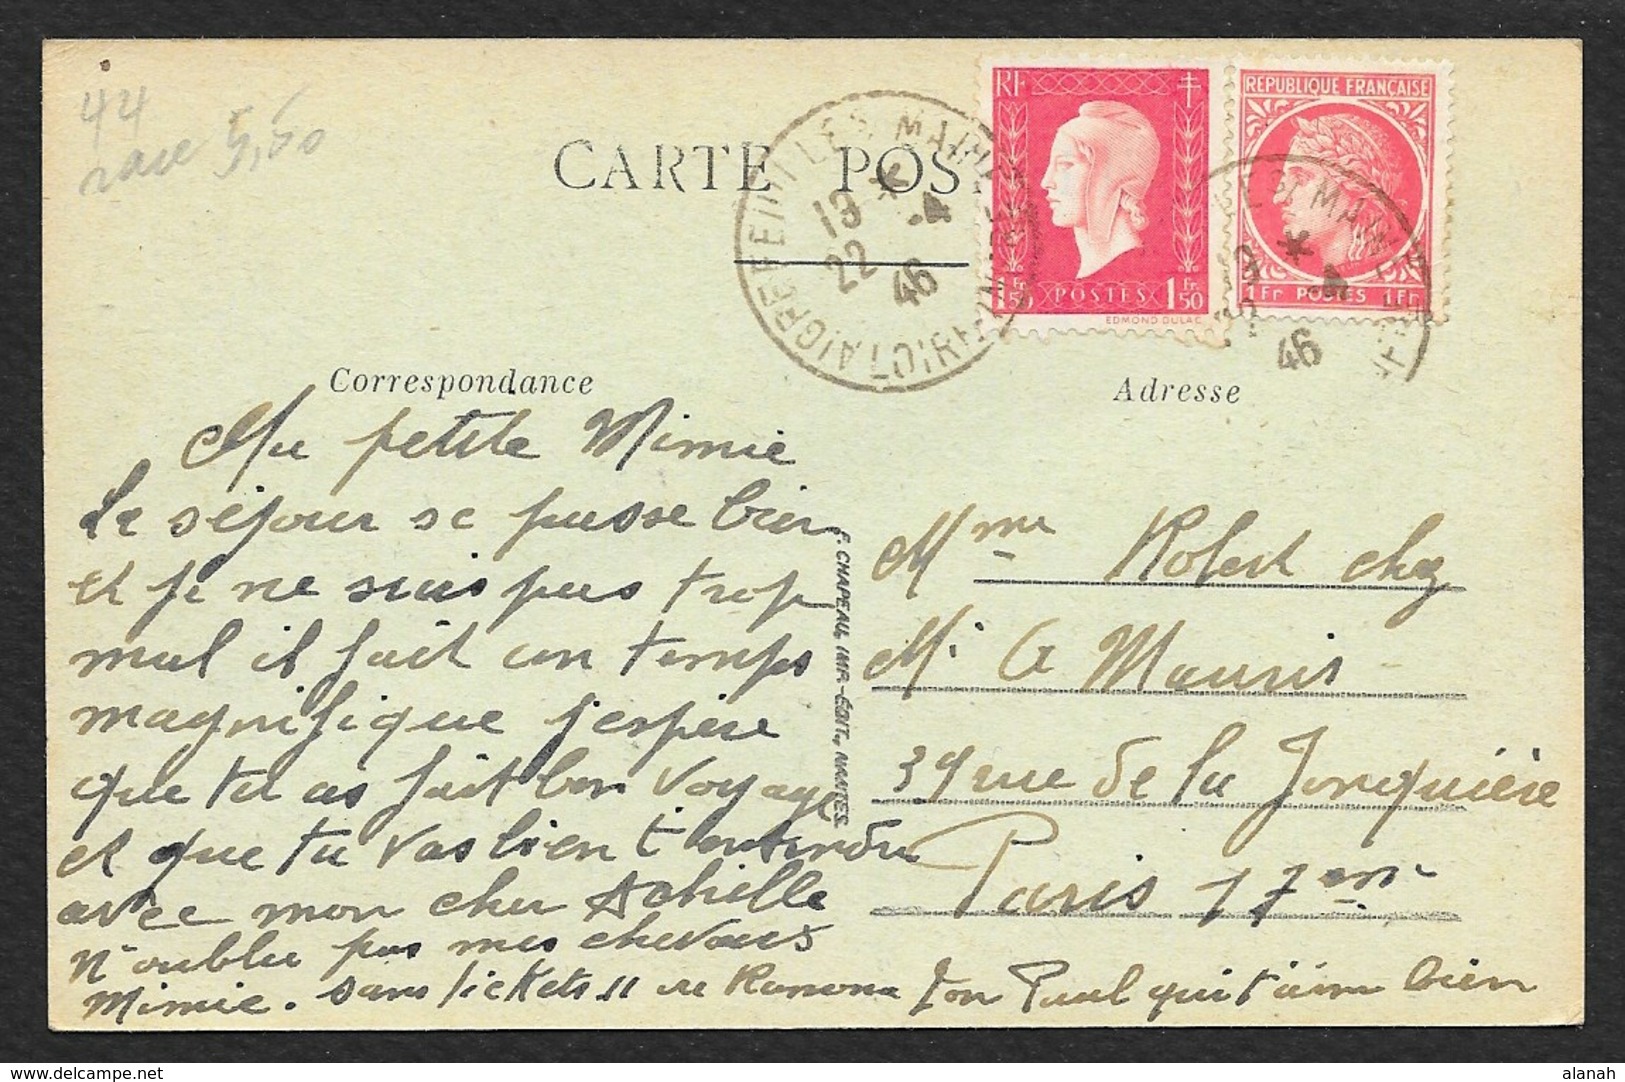 44
rare 5,50
CARTE POS
AIGREFEUILLE S. MAINE
13 *
22 -4
46
LOIRE INFRE
RF
1 Fr 50 POSTES 1 Fr 50
EDMOND DULAC
REPUBLIQUE FRANÇAISE
1 Fr POSTES 1 Fr
LE S. MAINE
13 *
22 -4
46
Correspondance
Adresse
Ma petite Mimie
Le séjour se passe bien
et je ne suis pas trop
mal il fait un temps
magnifique j'espère
que tu as fait bon voyage
et que tu vas bien t'entendre
avec mon cher Achille
N'oublie pas mes chevaux
Mimie. sans tickets
Ton Paul qui t'aime bien
F. CHAPEAU, IMP.-ÉDIT., NANTES.
Mme Robert chez
Mr G Mauris
39 rue de la Jonquière
Paris 17em
alanah
delcampe.net